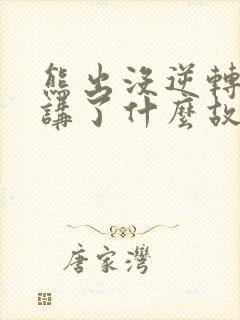 熊出没逆轉
講了什麼故
唐家灣